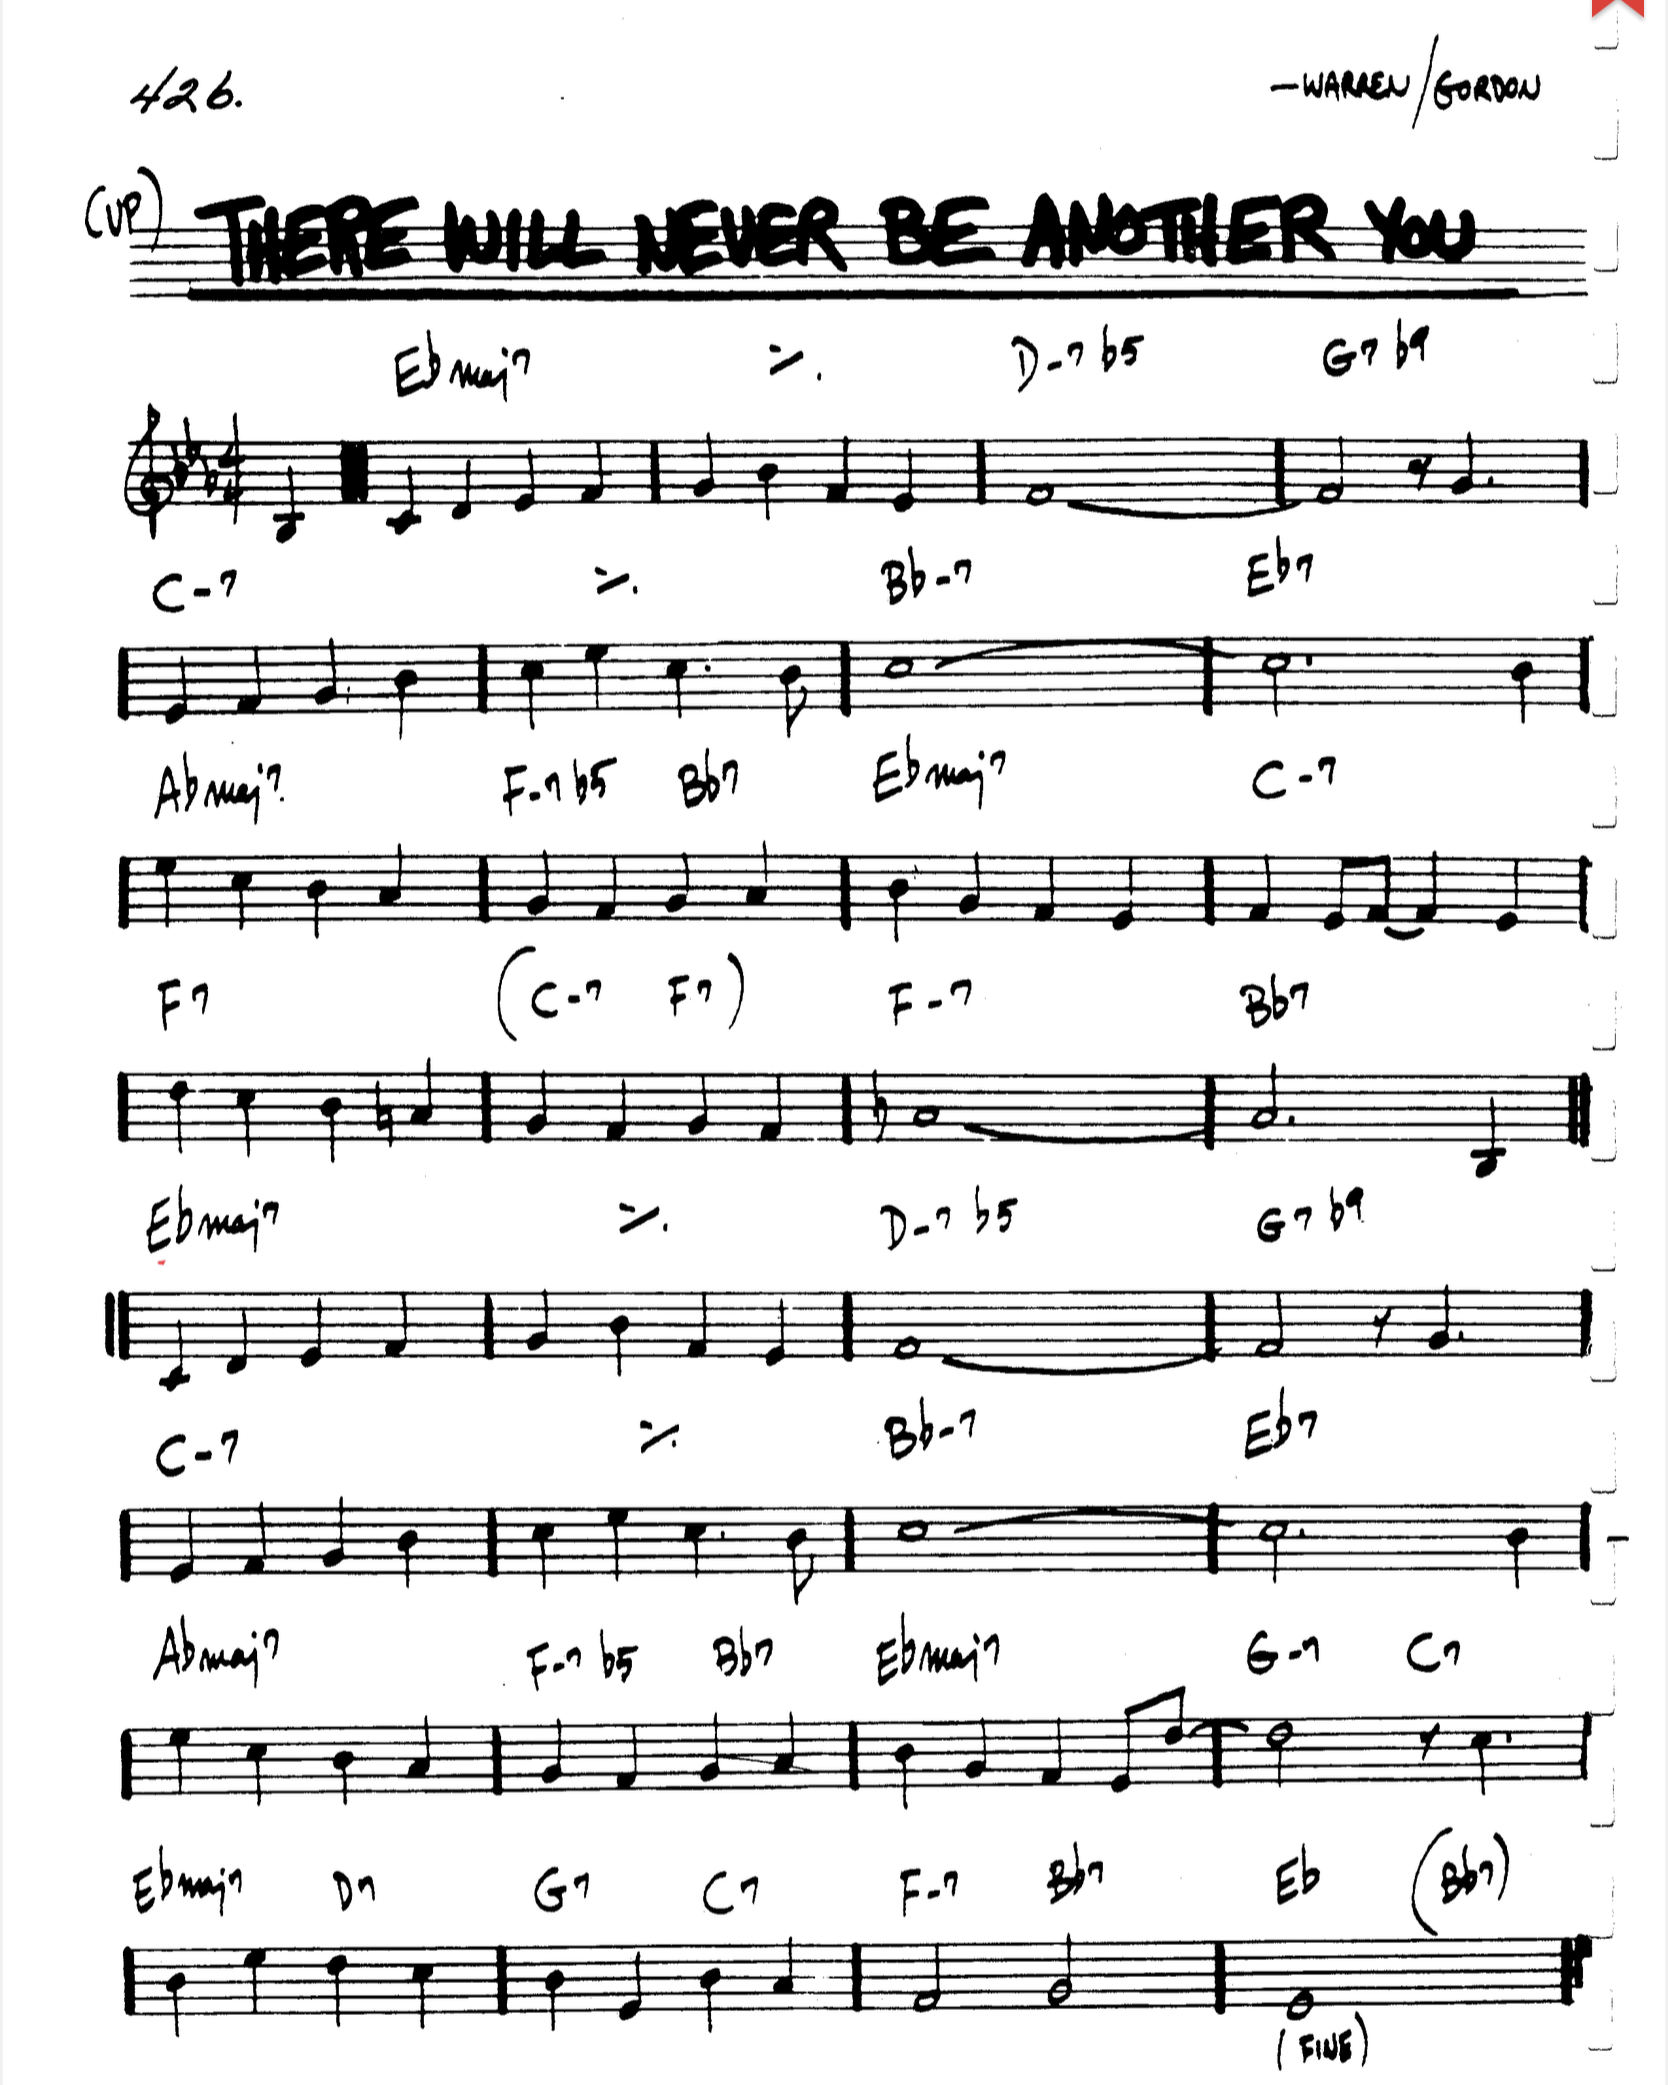 426.
—WARREN/GORDON
(UP) THERE WILL NEVER BE ANOTHER YOU
Ebmaj7 ٪ D-7b5 G7b9
C-7 ٪ Bb-7 Eb7
Abmaj7 F-7b5 Bb7 Ebmaj7 C-7
F7 (C-7 F7) F-7 Bb7
Ebmaj7 ٪ D-7b5 G7b9
C-7 ٪ Bb-7 Eb7
Abmaj7 F-7b5 Bb7 Ebmaj7 G-7 C7
Ebmaj7 D7 G7 C7 F-7 Bb7 Eb (Bb7)
(FINE)